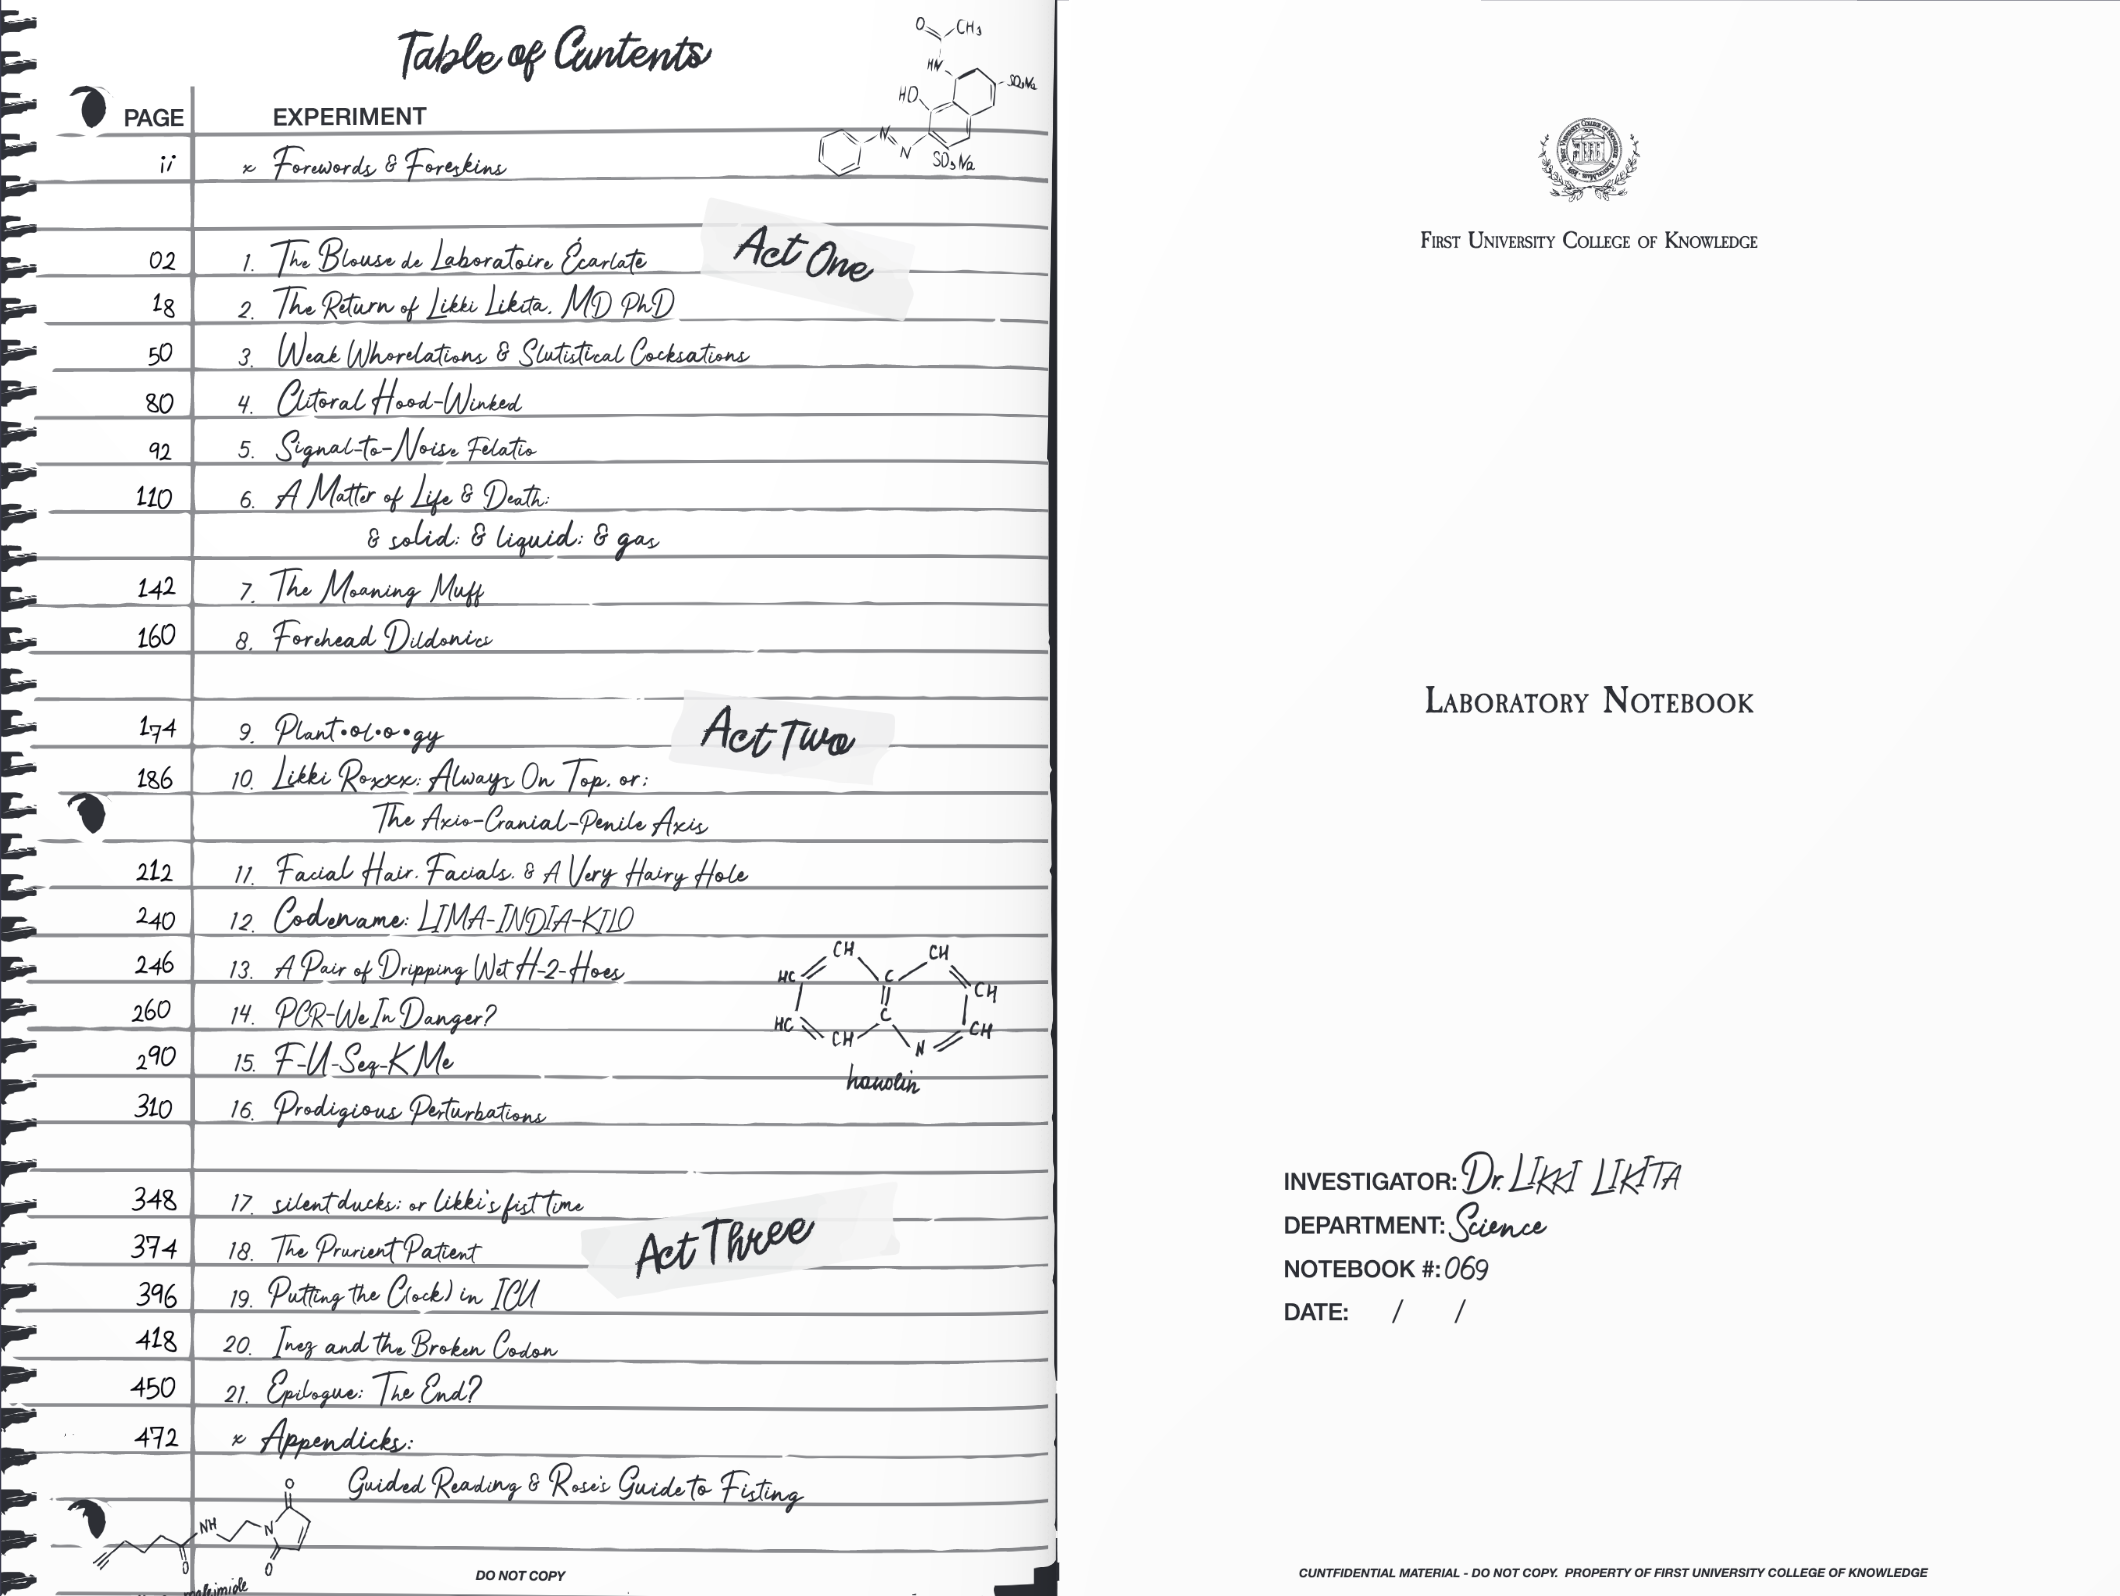 Table of Cuntents
PAGE EXPERIMENT
ii x Forewords & Foreskins
Act One
02 1. The Blouse de Laboratoire Écarlate
18 2. The Return of Likki Likita, MD PhD
50 3. Weak Whorelations & Slutistical Cocksations
80 4. Clitoral Hood-Winked
92 5. Signal-to-Noise Felatio
110 6. A Matter of Life & Death;
& solid; & liquid; & gas
142 7. The Moaning Muff
160 8. Forehead Dildonics
Act Two
174 9. Plant•ol•o•gy
186 10. Likki Roxxx: Always On Top, or;
The Axio-Cranial-Penile Axis
212 11. Facial Hair, Facials, & A Very Hairy Hole
240 12. Codename: LIMA-INDIA-KILO
246 13. A Pair of Dripping Wet H-2-Hoes
260 14. PCR-We In Danger?
290 15. F-U-Seq-K Me
310 16. Prodigious Perturbations
Act Three
348 17. silent ducks; or likki's fist time
374 18. The Prurient Patient
396 19. Putting the C(ock) in ICU
418 20. Inez and the Broken Codon
450 21. Epilogue: The End?
472 x Appendicks:
Guided Reading & Rose's Guide to Fisting
DO NOT COPY
O CH3
HN
SO3Na
HO
N
N
SO3Na
CH CH
HC C CH
HC C CH
CH N
O
NH
N
O O
FIRST UNIVERSITY COLLEGE OF KNOWLEDGE
LABORATORY NOTEBOOK
INVESTIGATOR: Dr. LIKKI LIKITA
DEPARTMENT: Science
NOTEBOOK #: 069
DATE: / /
CUNTFIDENTIAL MATERIAL - DO NOT COPY. PROPERTY OF FIRST UNIVERSITY COLLEGE OF KNOWLEDGE